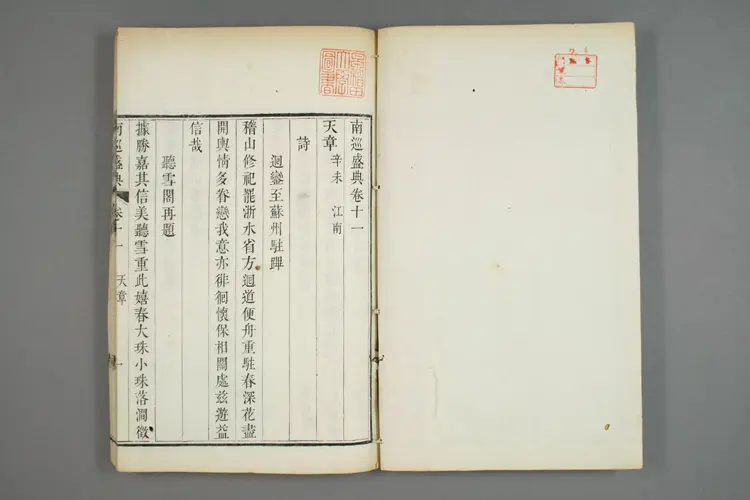 南巡盛典卷十一
天章 辛未 江南
詩
迴鑾至蘇州駐蹕
稽山修祀罷浙水省方迴道便舟重駐春深花盡
開輿情多眷戀我意亦徘徊懷保相關處兹遊益
信哉
聽雪閣再題
據勝嘉其信美聽雪重此嬉春大珠小珠落澗徵
南巡盛典 卷十一 天章 一